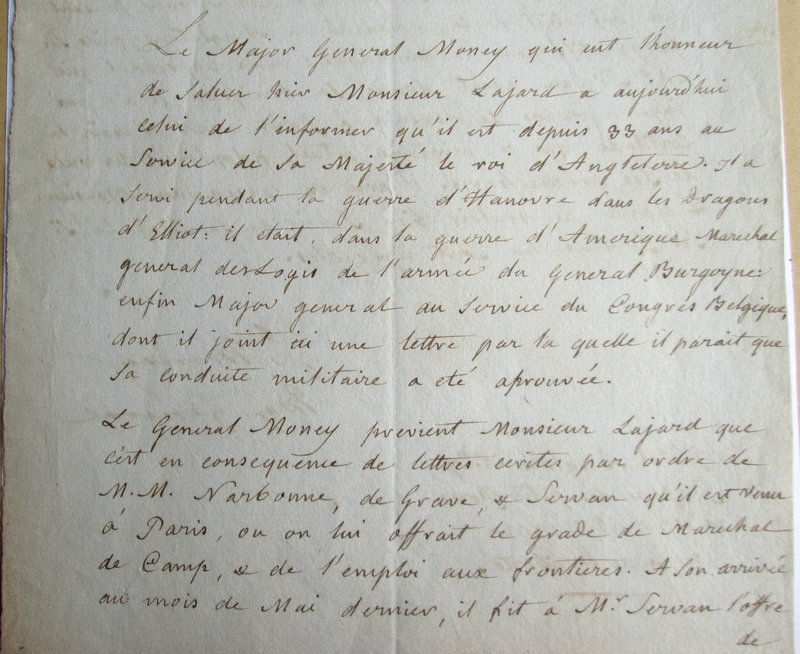 Le Major General Money qui eut l'honneur
de saluer hier Monsieur Lajard a aujourd'hui
celui de l'informer qu'il est depuis 33 ans au
Service de Sa Majesté le roi d'Angleterre. Il a
servi pendant la guerre d'Hanovre dans les Dragons
d'Elliot: il etait, dans la guerre d'Amerique Marechal
general des Logis de l'armée du General Burgoyne:
enfin Major general au Service du Congrés Belgique,
dont il joint ici une lettre par la quelle il parait que
sa conduite militaire a eté aprouvée.
Le General Money previent Monsieur Lajard que
c'est en consequence de lettres ecrites par ordre de
M.M. Narbonne, de Grave, & Servan qu'il est venu
à Paris, ou on lui offrait le grade de Marechal
de Camp, & de l'emploi aux frontieres. A son arrivée
au mois de Mai dernier, il fit à Mr. Servan l'offre
de